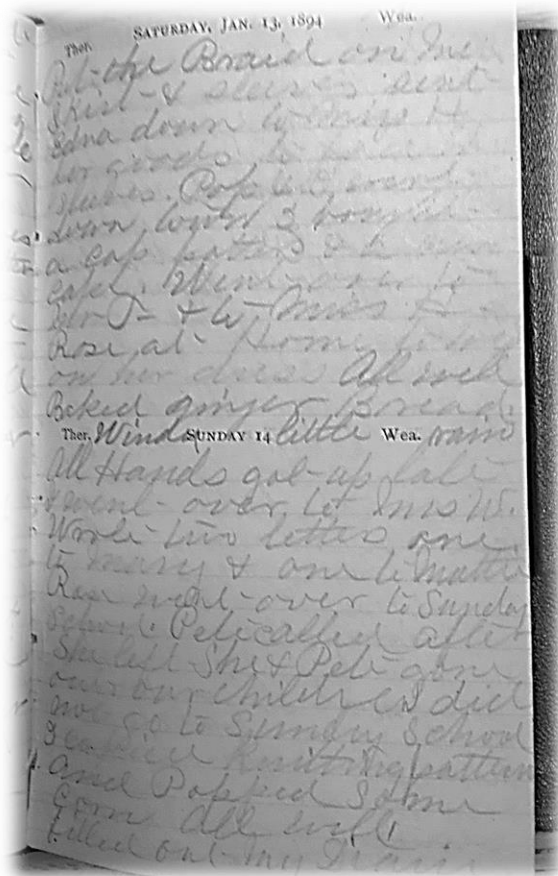 Ther. SATURDAY, JAN. 13, 1894 Wea.
Put the Braid on
Skirt & sleeves sent
Edna down to Miss H
for goods to
sleeves. Pop & I went
down town & bought
a cap pattern &
cape. Went over to
& to Miss
Rose at Home to day
on her dress All well
Baked ginger Bread.
Ther. Windy SUNDAY 14 little Wea. rain
All Hands got up late
& went over to Mrs W.
Wrote two letters one
to Mary & one to Mattie
Rose went over to Sunday
School. Pete called after
She left She & Pete gone
our children did
not go to Sunday School
I copied Knitting pattern
and Popped Some
Corn All well
Filled out my Diary